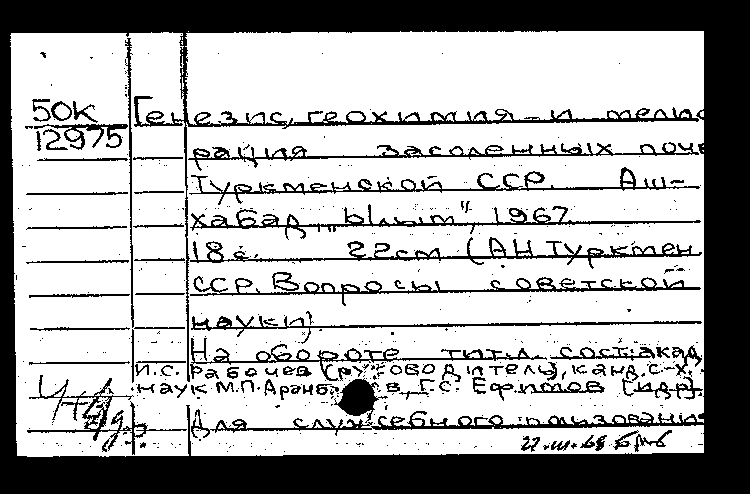 50К Генезис, геохимия и мелио
12975
рация засоленных почв
Туркменской ССР. Аш-
хабад, „Ылым", 1967
18 с. 22 см (АН Туркмен.
ССР. Вопросы советской
науки).
На обороте тит. л. сост: акад.
И.С. Рабочев (руководитель), канд. с.-х.
наук М.П. Аранб в, Г.С. Ефимов [и др].
Для служебного пользования
22.III.68